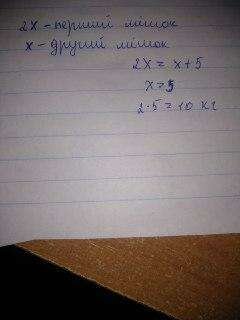 2x - перший мішок
x - другий мішок
2x = x + 5
x = 5
2 · 5 = 10 кг